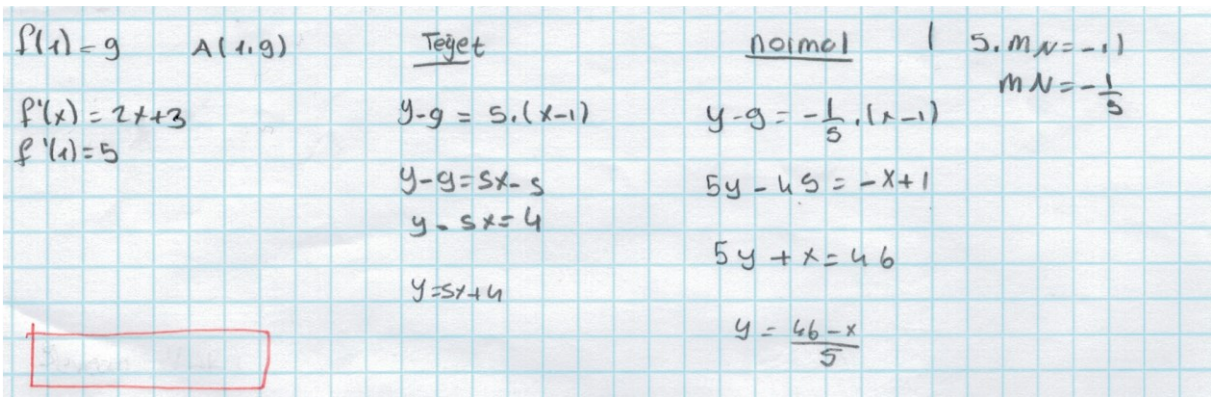 f(1) = 9 A(1,9)
f'(x) = 2x+3
f'(1) = 5
Teğet
y-9 = 5.(x-1)
y-9=5x-5
y-5x=4
y=5x+4
normal
y-9 = -1/5.(x-1)
5y-45 = -x+1
5y+x=46
y = 46-x/5
5.mN = -1
mN = -1/5